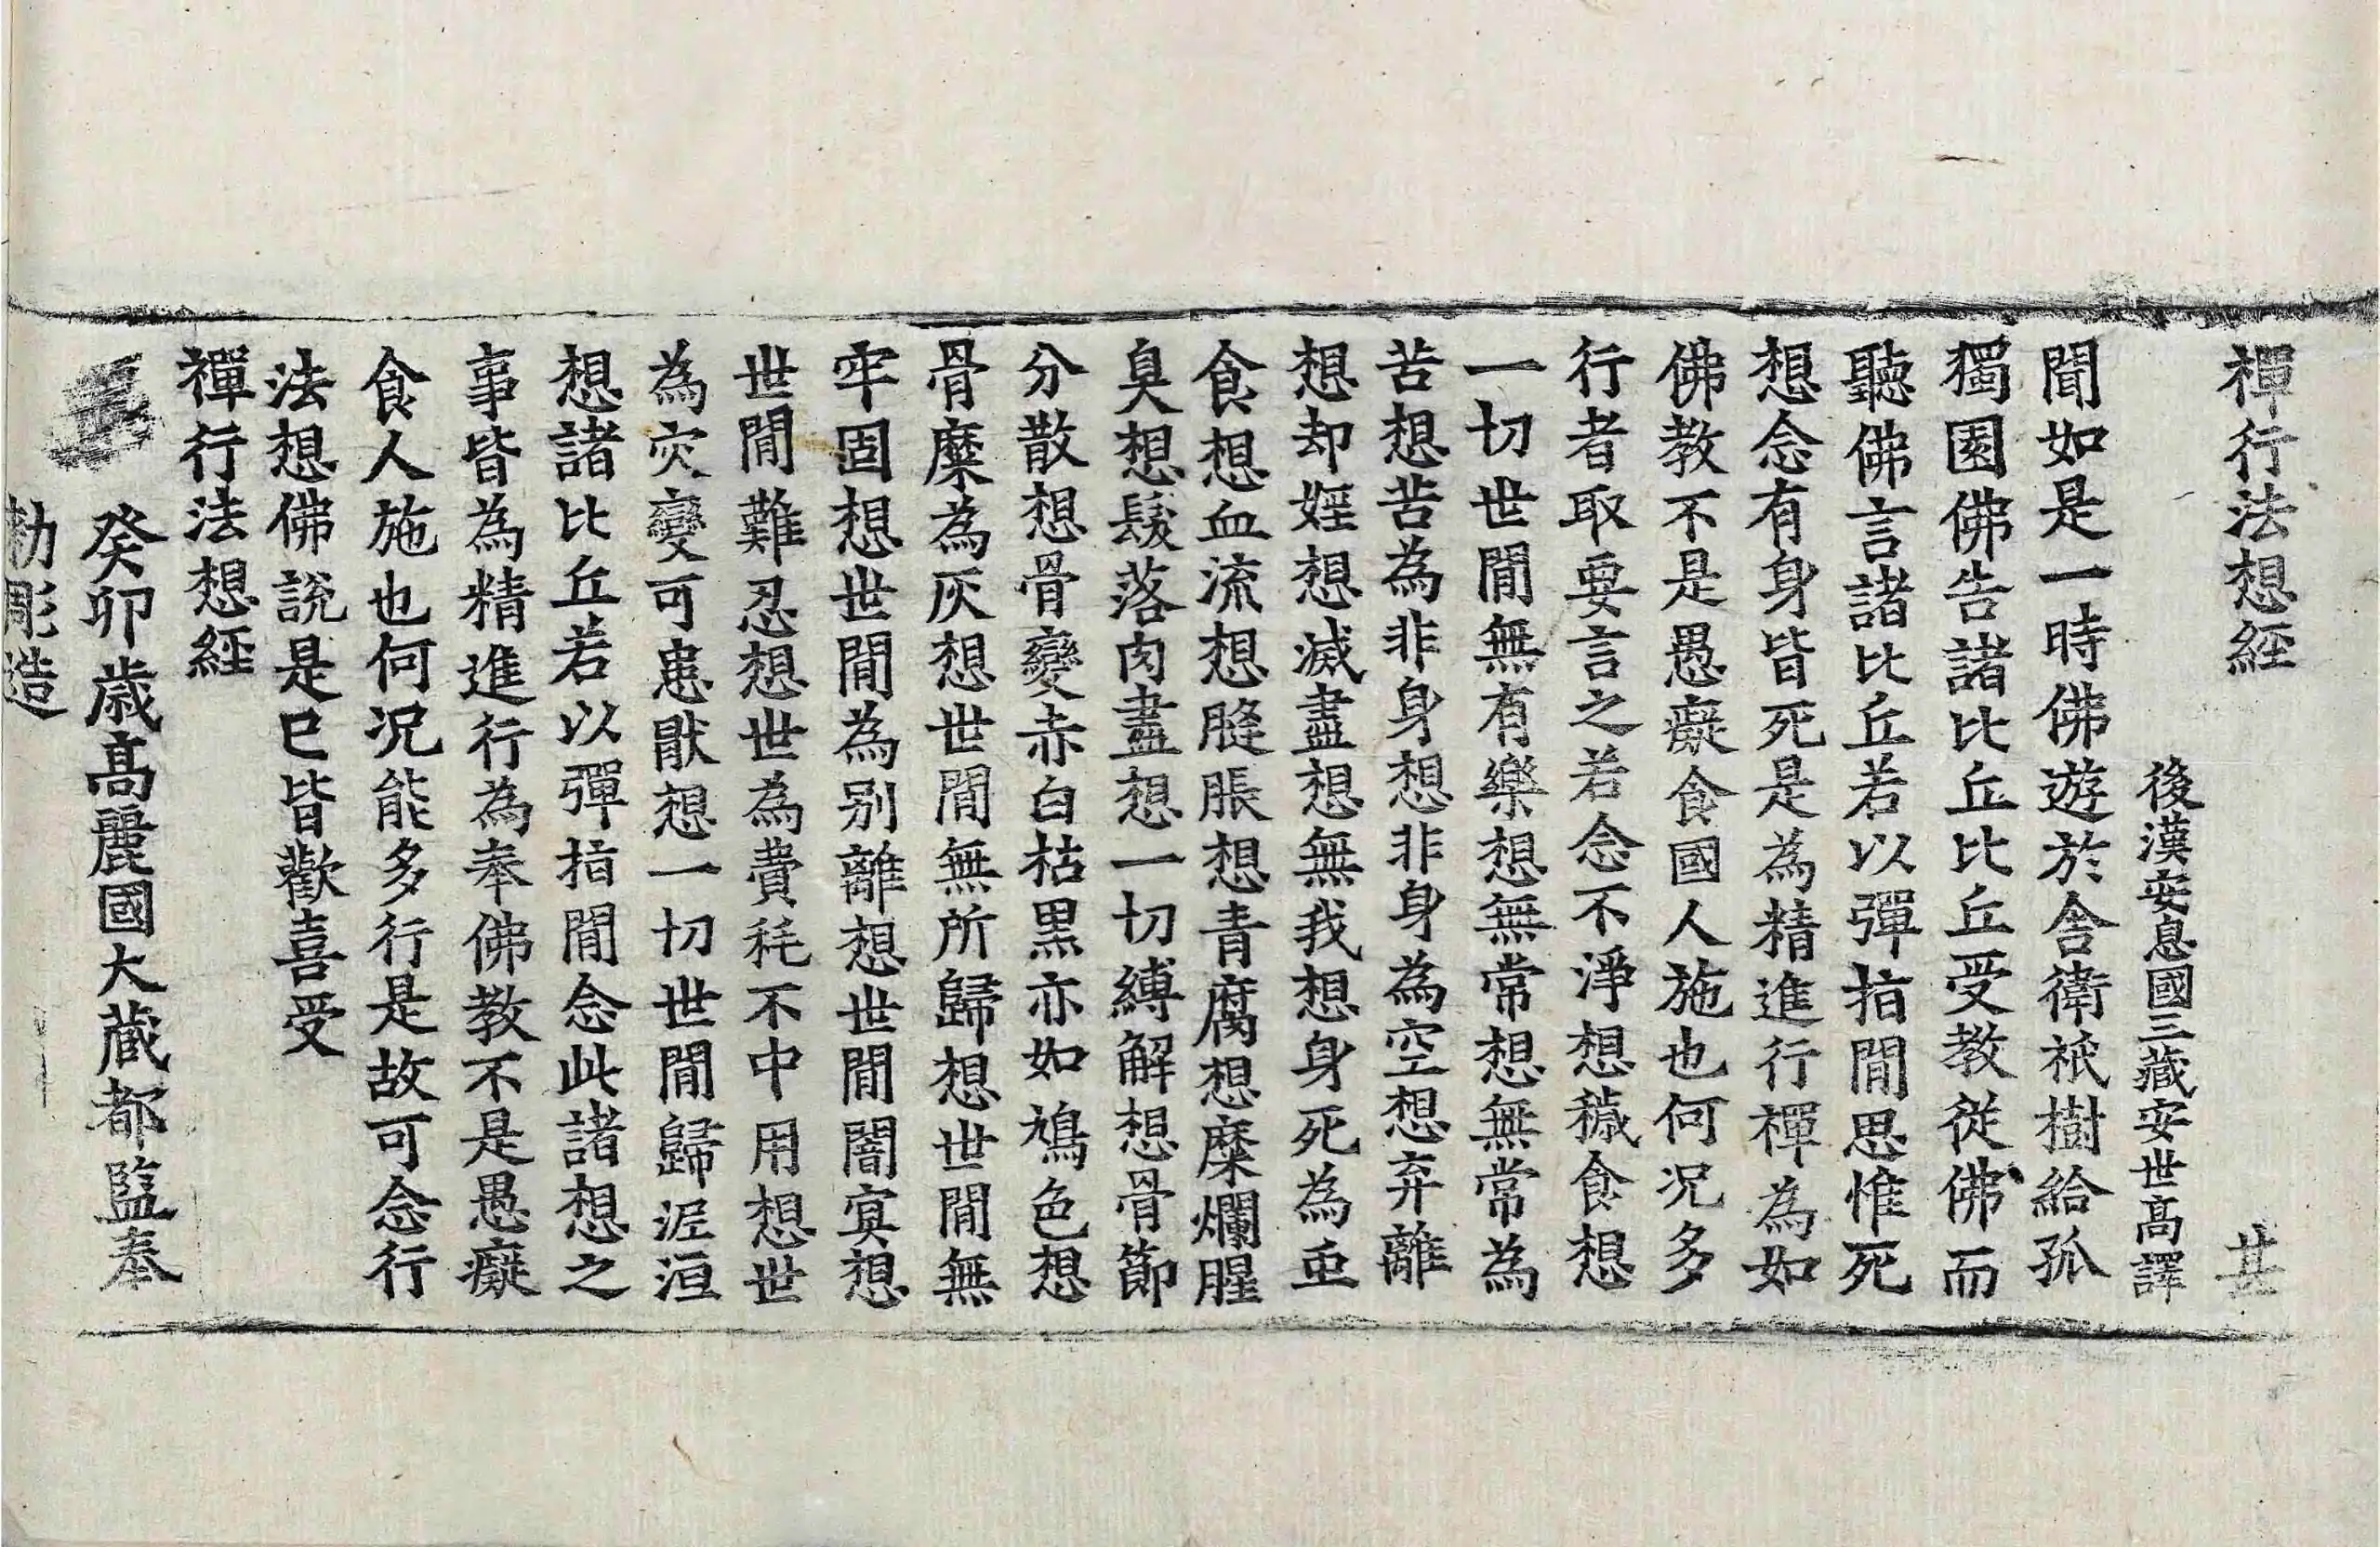 禪行法想經 甚
後漢安息國三藏安世高譯
聞如是一時佛遊於舎衛祇樹給孤
獨園佛告諸比丘比丘受教從佛而
聽佛言諸比丘若以彈指閒思惟死
想念有身皆死是為精進行禪為如
佛教不是愚癡食國人施也何况多
行者取要言之若念不淨想穢食想
一切世閒無有樂想無常想無常為
苦想苦為非身想非身為空想弃離
想却婬想滅盡想無我想身死為䖝
食想血流想膖脹想青腐想糜爛腥
臭想髮落肉盡想一切縛解想骨節
分散想骨變赤白枯黒亦如鳩色想
骨糜為灰想世閒無所歸想世閒無
牢固想世閒為别離想世閒闇冥想
世閒難忍想世為費秏不中用想世
為灾變可患猒想一切世閒歸泥洹
想諸比丘若以彈指閒念此諸想之
事皆為精進行為奉佛教不是愚癡
食人施也何况能多行是故可念行
法想佛說是已皆歡喜受
禪行法想經
癸卯歳髙麗國大藏都監奉
勅彫造